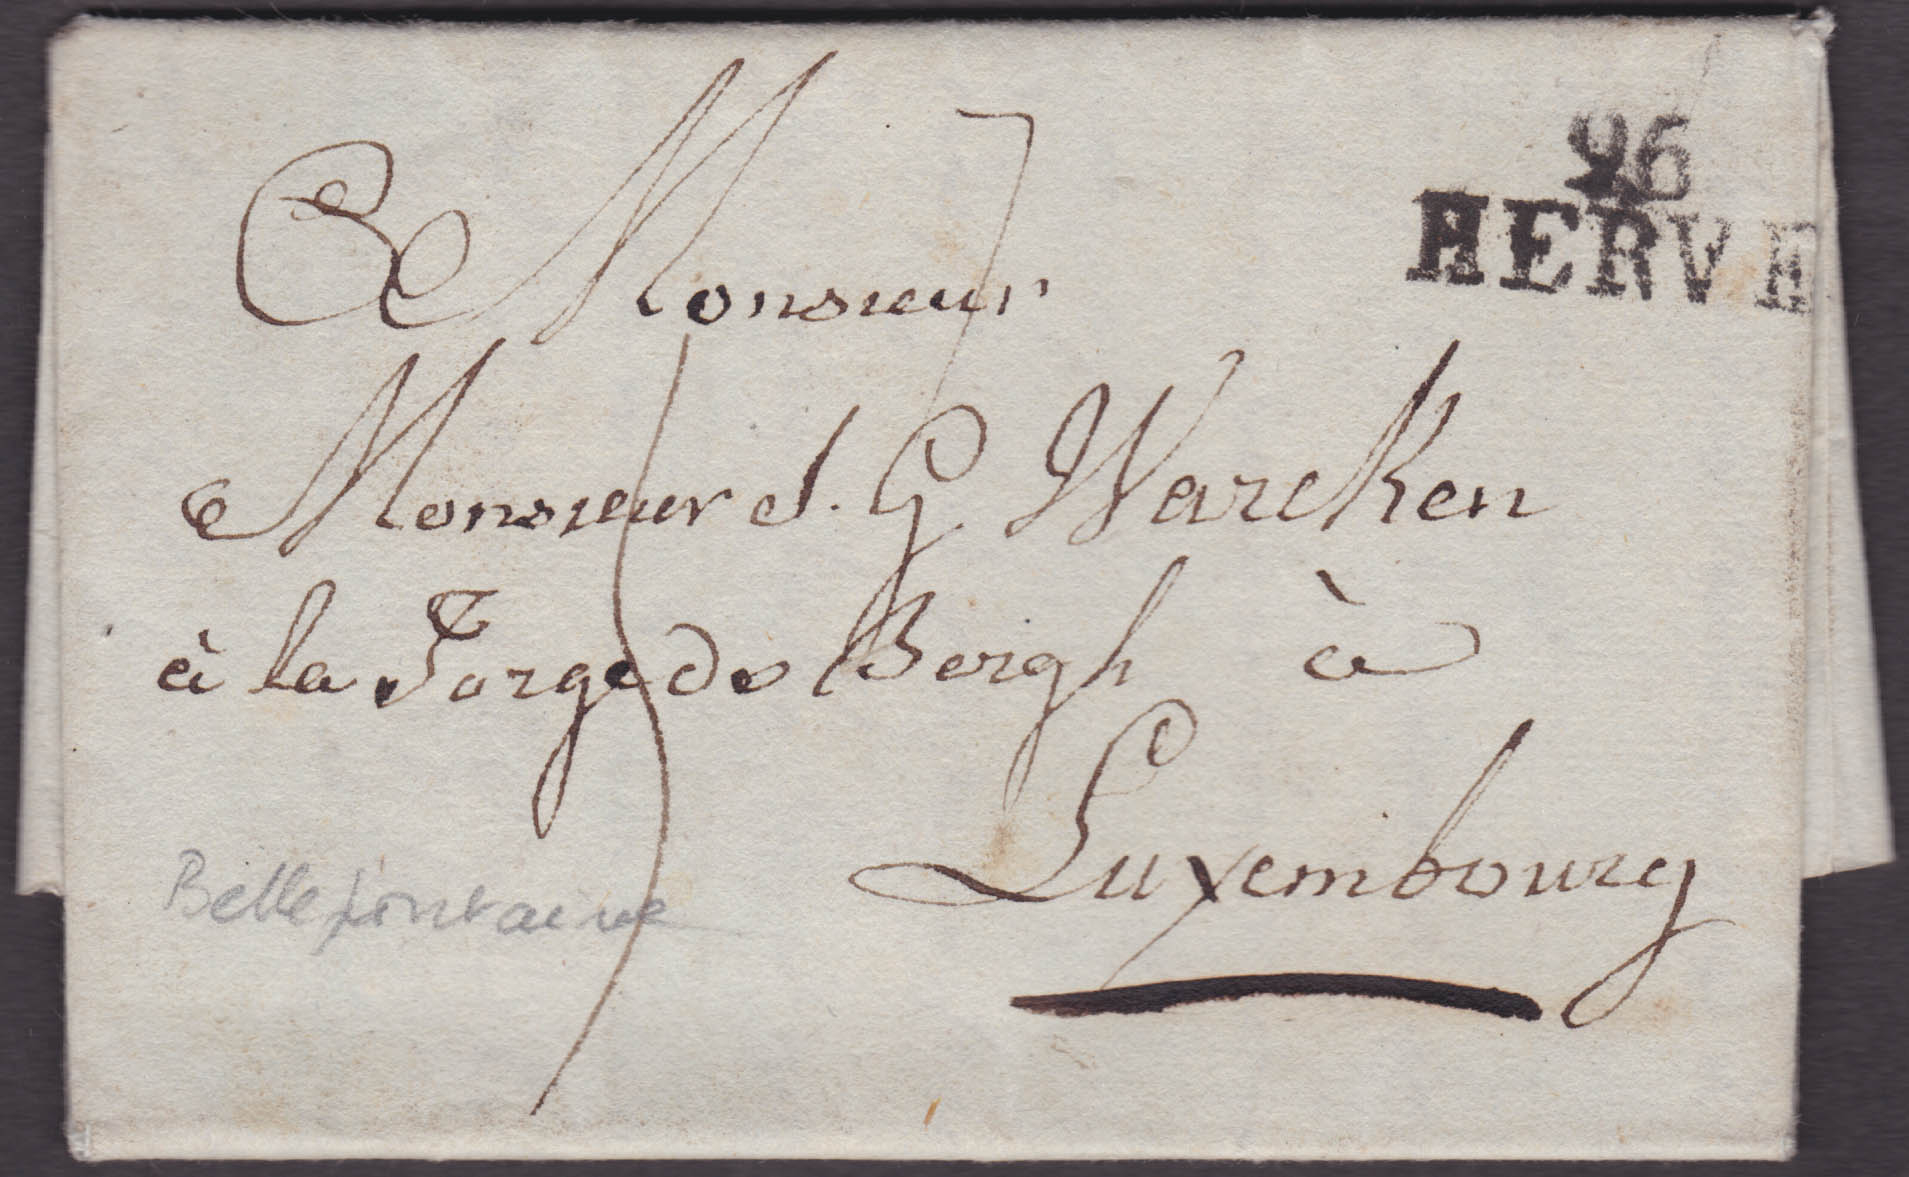 96
HERVE
Monsieur
Monsieur J. G Warcken
à la Forge de Bergh à
Luxembourg
Bellefontaine